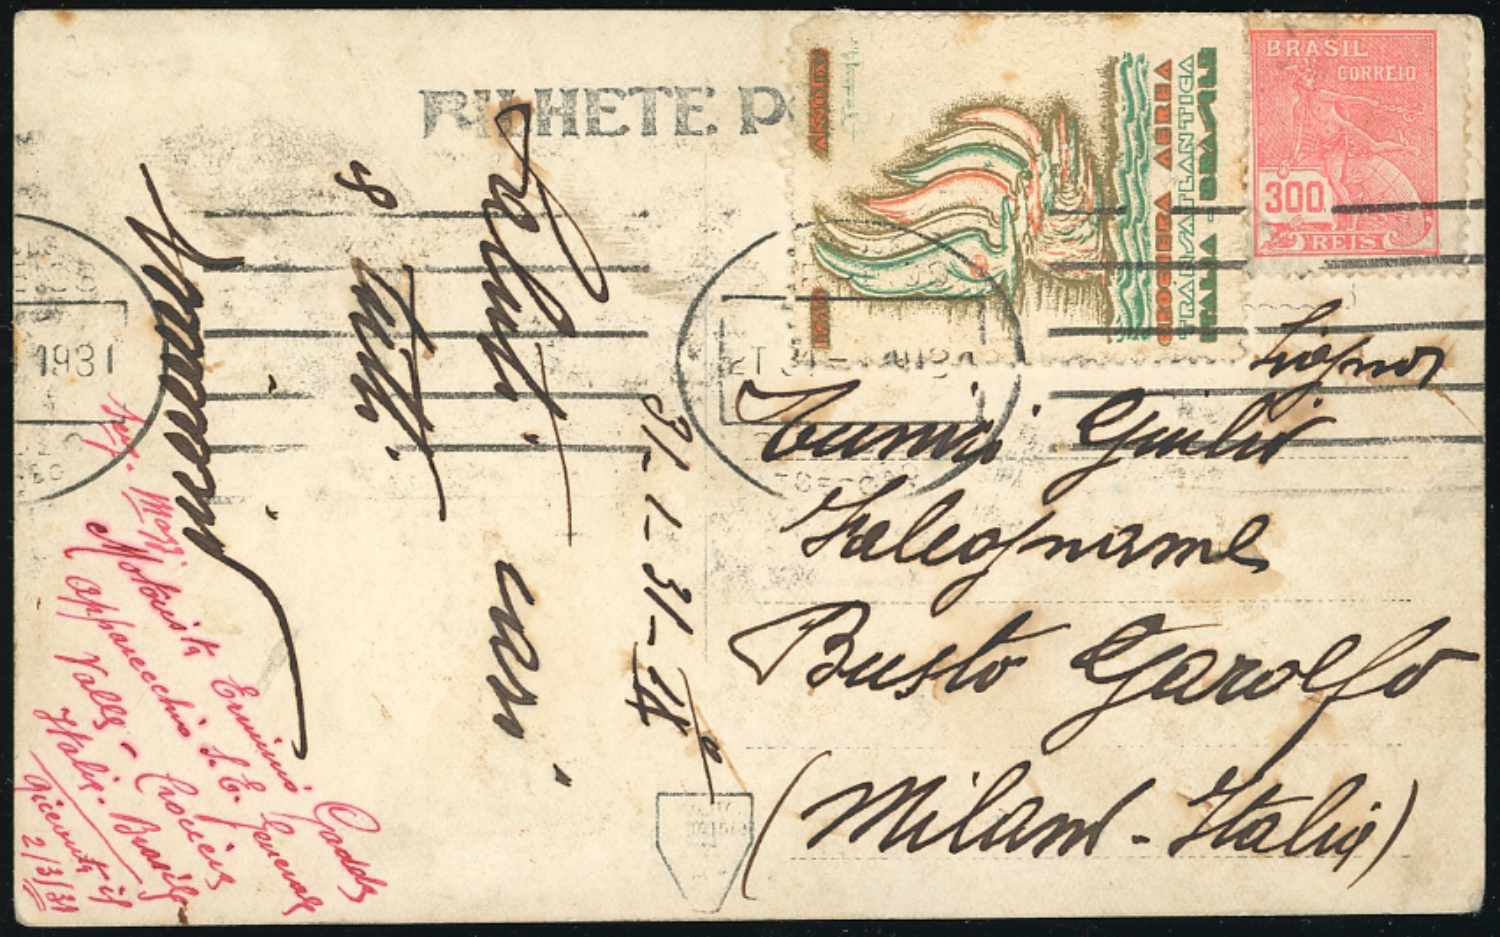 BILHETE PO
BRASIL
CORREIO
300
REIS
CROCIERA AEREA
TRANSATLANTICA
ITALIA - BRASILE
1931
Saluti cari
a tutti
31-1-31-IX°
Signor
Tunici Giulio
Falegname
Busto Garolfo
(Milano - Italia)
Serg. Magg.
Motorista Erminio Gadda
apparecchio S. E. Generale
Valle - Crociera
Italia - Brasile
Ricevuta il
2/3/31